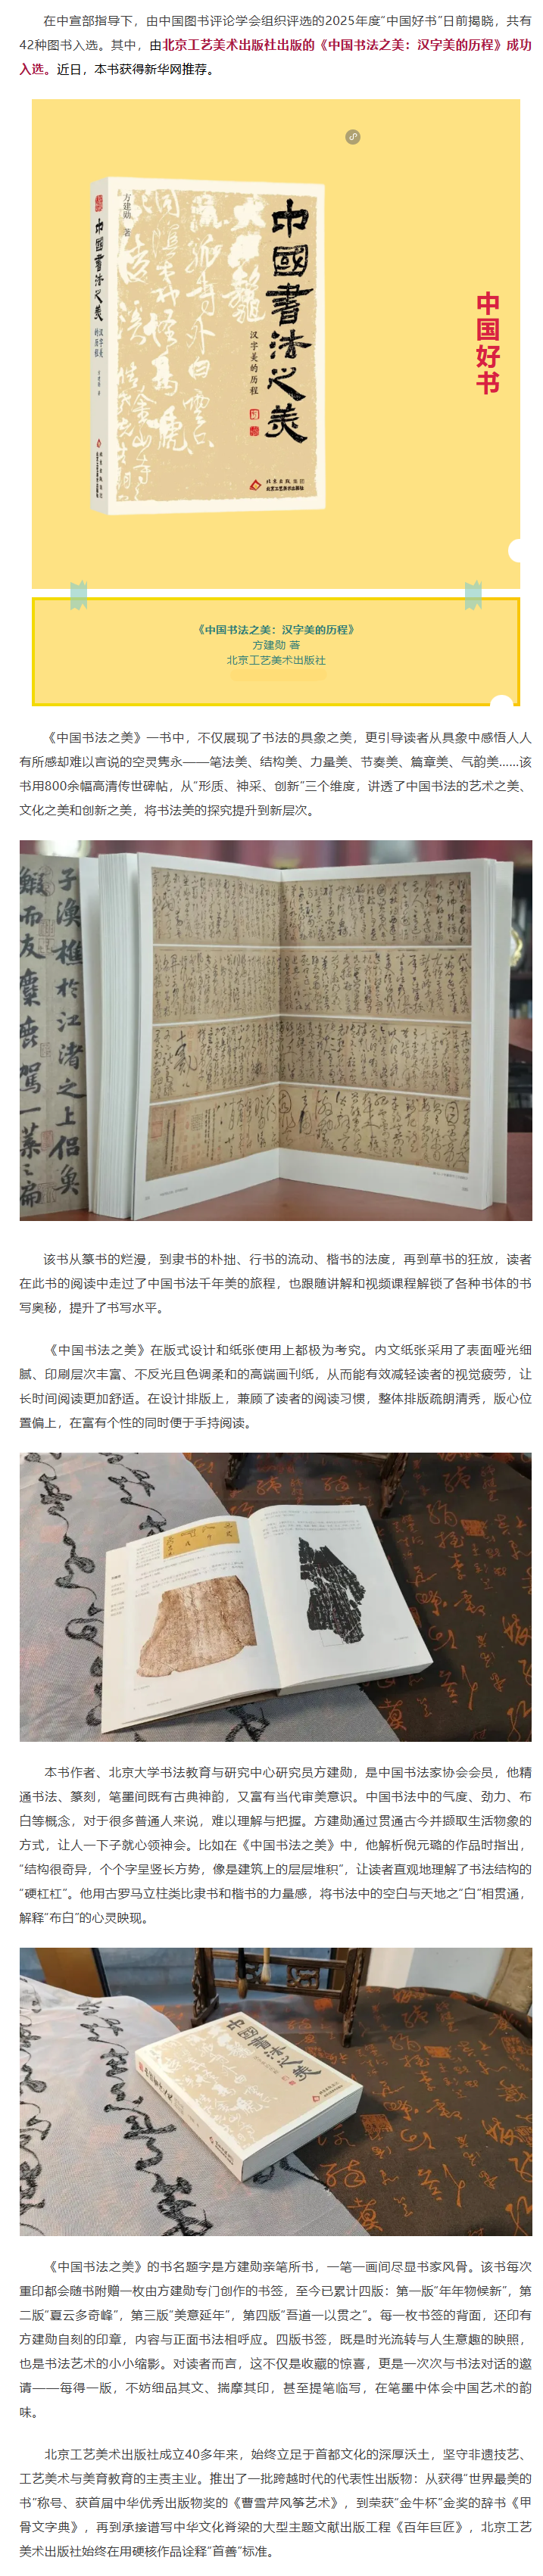 在中宣部指导下，由中国图书评论学会组织评选的2025年度“中国好书”日前揭晓，共有
42种图书入选。其中，由北京工艺美术出版社出版的《中国书法之美：汉字美的历程》成功
入选。近日，本书获得新华网推荐。
方建勋 著
中國書法之美
汉字美的历程
中國書法之美
汉字美的历程
北京工艺美术出版社
中国好书
《中国书法之美：汉字美的历程》
方建勋 著
北京工艺美术出版社
《中国书法之美》一书中，不仅展现了书法的具象之美，更引导读者从具象中感悟人人
有所感却难以言说的空灵隽永——笔法美、结构美、力量美、节奏美、篇章美、气韵美……该
书用800余幅高清传世碑帖，从“形质、神采、创新”三个维度，讲透了中国书法的艺术之美、
文化之美和创新之美，将书法美的探究提升到新层次。
子渔樵於江渚之上侣鱼
鰕而友麋鹿駕一葉之扁
该书从篆书的烂漫，到隶书的朴拙、行书的流动、楷书的法度，再到草书的狂放，读者
在此书的阅读中走过了中国书法千年美的旅程，也跟随讲解和视频课程解锁了各种书体的书
写奥秘，提升了书写水平。
《中国书法之美》在版式设计和纸张使用上都极为考究。内文纸张采用了表面哑光细
腻、印刷层次丰富、不反光且色调柔和的高端画刊纸，从而能有效减轻读者的视觉疲劳，让
长时间阅读更加舒适。在设计排版上，兼顾了读者的阅读习惯，整体排版疏朗清秀，版心位
置偏上，在富有个性的同时便于手持阅读。
本书作者、北京大学书法教育与研究中心研究员方建勋，是中国书法家协会会员，他精
通书法、篆刻，笔墨间既有古典神韵，又富有当代审美意识。中国书法中的气度、劲力、布
白等概念，对于很多普通人来说，难以理解与把握。方建勋通过贯通古今并撷取生活物象的
方式，让人一下子就心领神会。比如在《中国书法之美》中，他解析倪元璐的作品时指出，
“结构很奇异，个个字呈竖长方势，像是建筑上的层层堆积”，让读者直观地理解了书法结构的
“硬杠杠”。他用古罗马立柱类比隶书和楷书的力量感，将书法中的空白与天地之“白”相贯通，
解释“布白”的心灵映现。
中國書法之美
《中国书法之美》的书名题字是方建勋亲笔所书，一笔一画间尽显书家风骨。该书每次
重印都会随书附赠一枚由方建勋专门创作的书签，至今已累计四版：第一版“年年物候新”，第
二版“夏云多奇峰”，第三版“美意延年”，第四版“吾道一以贯之”。每一枚书签的背面，还印有
方建勋自刻的印章，内容与正面书法相呼应。四版书签，既是时光流转与人生意趣的映照，
也是书法艺术的小小缩影。对读者而言，这不仅是收藏的惊喜，更是一次次与书法对话的邀
请——每得一版，不妨细品其文、揣摩其印，甚至提笔临写，在笔墨中体会中国艺术的韵
味。
北京工艺美术出版社成立40多年来，始终立足于首都文化的深厚沃土，坚守非遗技艺、
工艺美术与美育教育的主责主业。推出了一批跨越时代的代表性出版物：从获得“世界最美的
书”称号、获首届中华优秀出版物奖的《曹雪芹风筝艺术》，到荣获“金牛杯”金奖的辞书《甲
骨文字典》，再到承接谱写中华文化脊梁的大型主题文献出版工程《百年巨匠》，北京工艺
美术出版社始终在用硬核作品诠释“首善”标准。